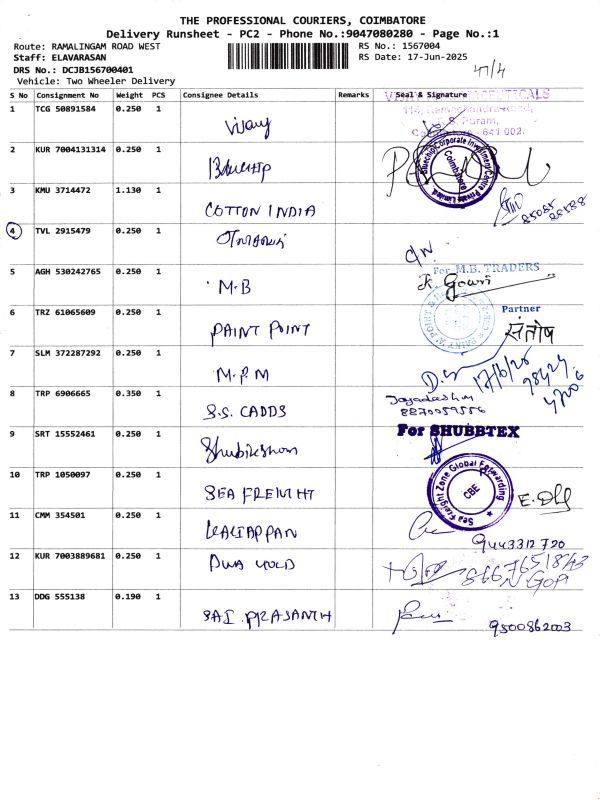 THE PROFESSIONAL COURIERS, COIMBATORE
Delivery Runsheet - PC2 - Phone No.:9047080280 - Page No.:1
Route: RAMALINGAM ROAD WEST
RS No.: 1567004
Staff: ELAVARASAN
RS Date: 17-Jun-2025
DRS No.: DCJB156700401
47/4
Vehicle: Two Wheeler Delivery
S No Consignment No Weight PCS Consignee Details Remarks Seal & Signature
1 TCG 50891584 0.250 1 Vijay
R.S. Puram,
Coimbatore - 641 002.
2 KUR 7004131314 0.250 1 BLUECHIP
Bluechip Corporate Investment Centre Private Limited
Coimbatore
3 KMU 3714472 1.130 1 COTTON INDIA
85085
4 TVL 2915479 0.250 1
5 AGH 530242765 0.250 1 M.B
For M.B. TRADERS
K. Gowri
Partner
6 TRZ 61065609 0.250 1 PAINT POINT
संतोष
7 SLM 372287292 0.250 1 M.P.M
17/6/25
8 TRP 6906665 0.350 1 S.S. CADDS
8870059556
9 SRT 15552461 0.250 1 Shubikshom
For SHUBBTEX
10 TRP 1050097 0.250 1 SEA FREIGHT
Sea Freight Zone Global Forwarding
CBE
11 CMM 354501 0.250 1 KALIAPPAN
9443312720
12 KUR 7003889681 0.250 1
GOPI
13 DDG 555138 0.190 1 SAI PRASANTH
9500862003